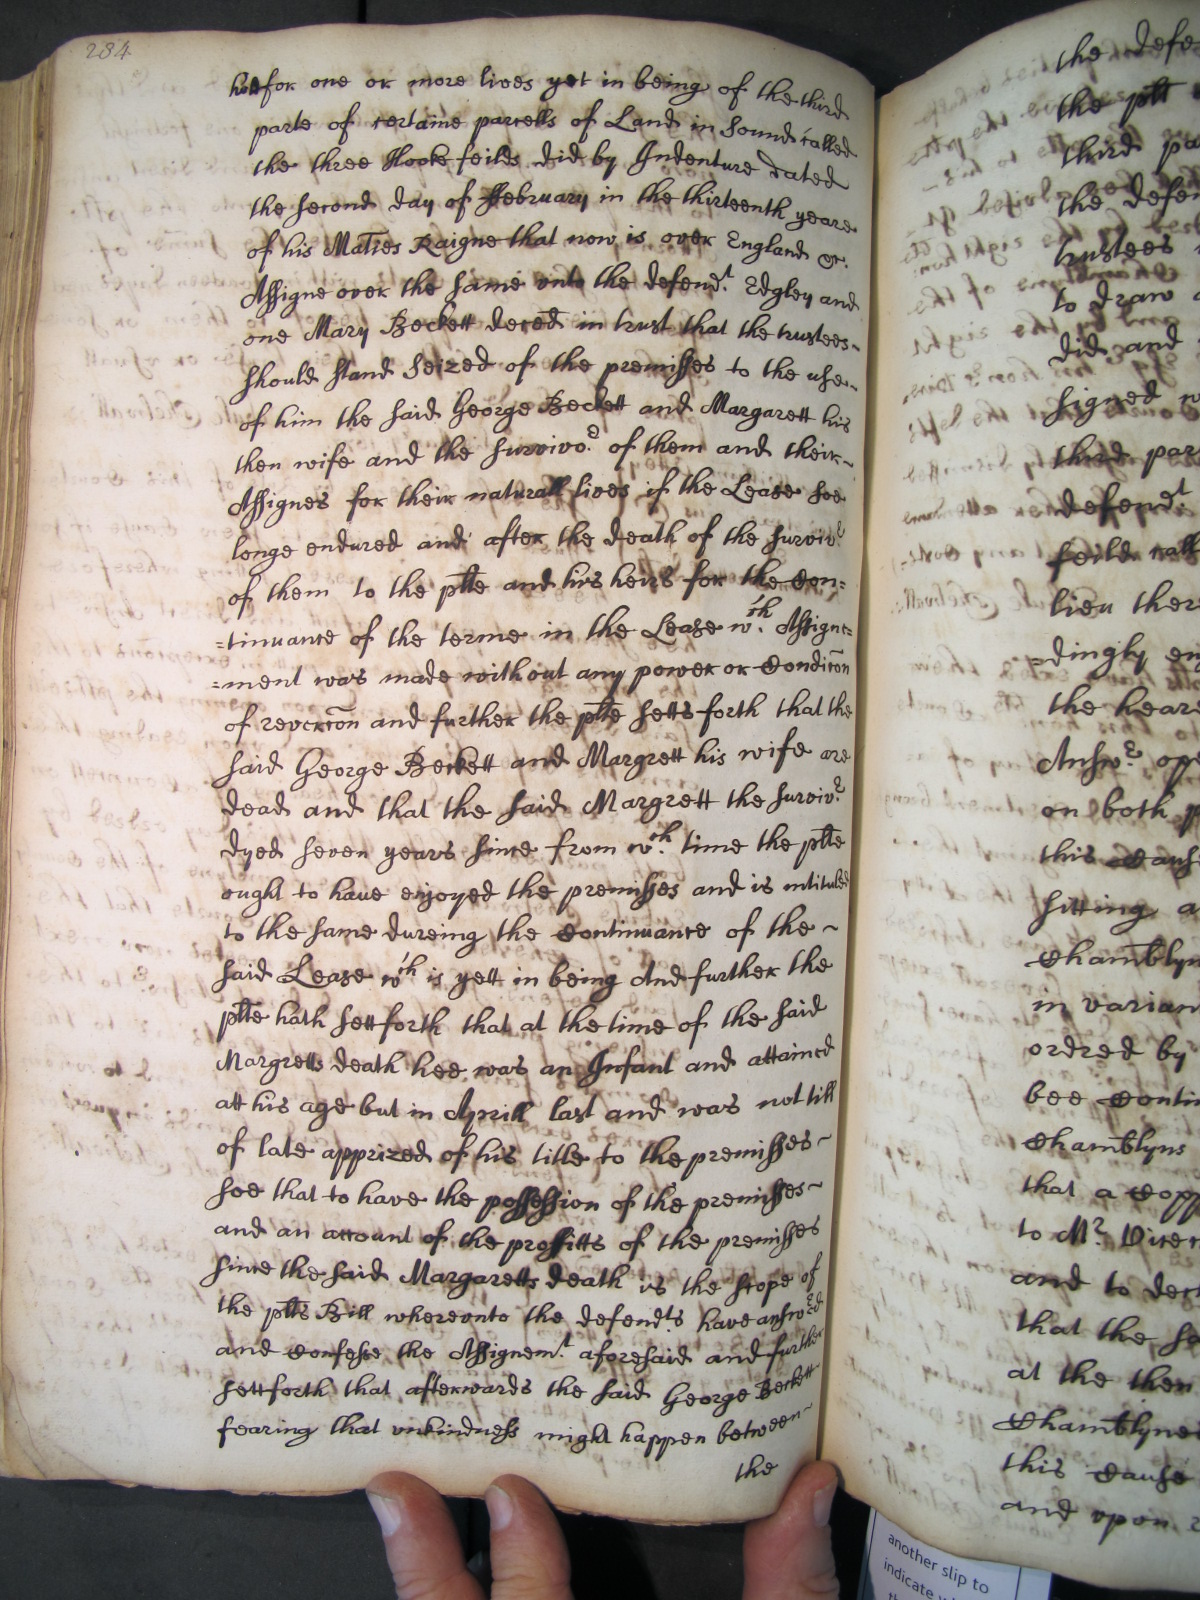 284
for one or more lives yet in being of the third
parte of certaine parcells of Land in Sound called
the three Hooke feilds did by Indenture dated
the second day of ffebruary in the thirteenth yeare
of his Maties Raigne that now is over England &c.
Assigne over the same unto the defendt. Edgley and
one Mary Beckett deced in trust that the trustees
should stand seized of the premisses to the use
of him the said George Beckett and Margarett his
then wife and the Survivor. of them and their
Assignes for their naturall lives if the Lease soe
longe endured and after the death of the Survivr.
of them to the plte and his heirs for the Con=
=tinuance of the terme in the Lease wch. Assigne=
=ment was made without any power or Condicon
of revercon and further the plte setts forth that the
said George Beckett and Margrett his wife are
dead and that the said Margrett the Survivr.
dyed seven years since from wch. time the plte
ought to have enjoyed the premisses and is intituled
to the same dureing the Continuance of the ~
said Lease wch is yett in being And further the
plte hath sett forth that at the time of the said
Margretts death hee was an Infant and attained
att his age but in Aprill last and was not till
of late apprized of his title to the premisses ~
soe that to have the possession of the premisses ~
and an account of the proffitts of the premisses
since the said Margaretts death is the scope of
the plts Bill whereunto the defendts have answred
and Confesse the Assignemt. aforesaid and further
sett forth that afterwards the said George Beckett
fearing that unkindness might happen between ~
the
the defen
the plt
third pa
the defen
trustees
to draw
did and
signed
third par
defendt
feild call
lieu ther
=dingly en
the hear
Answr. ope
on both p
this Cause
sitting a
Chamblyn
in varian
ordred by
bee Contin
Chamblyns
that a Copp
to Mr. Vicer
and to dec
that the se
at the then
Chamblynes
this Cause
and upon
another slip to
indicate